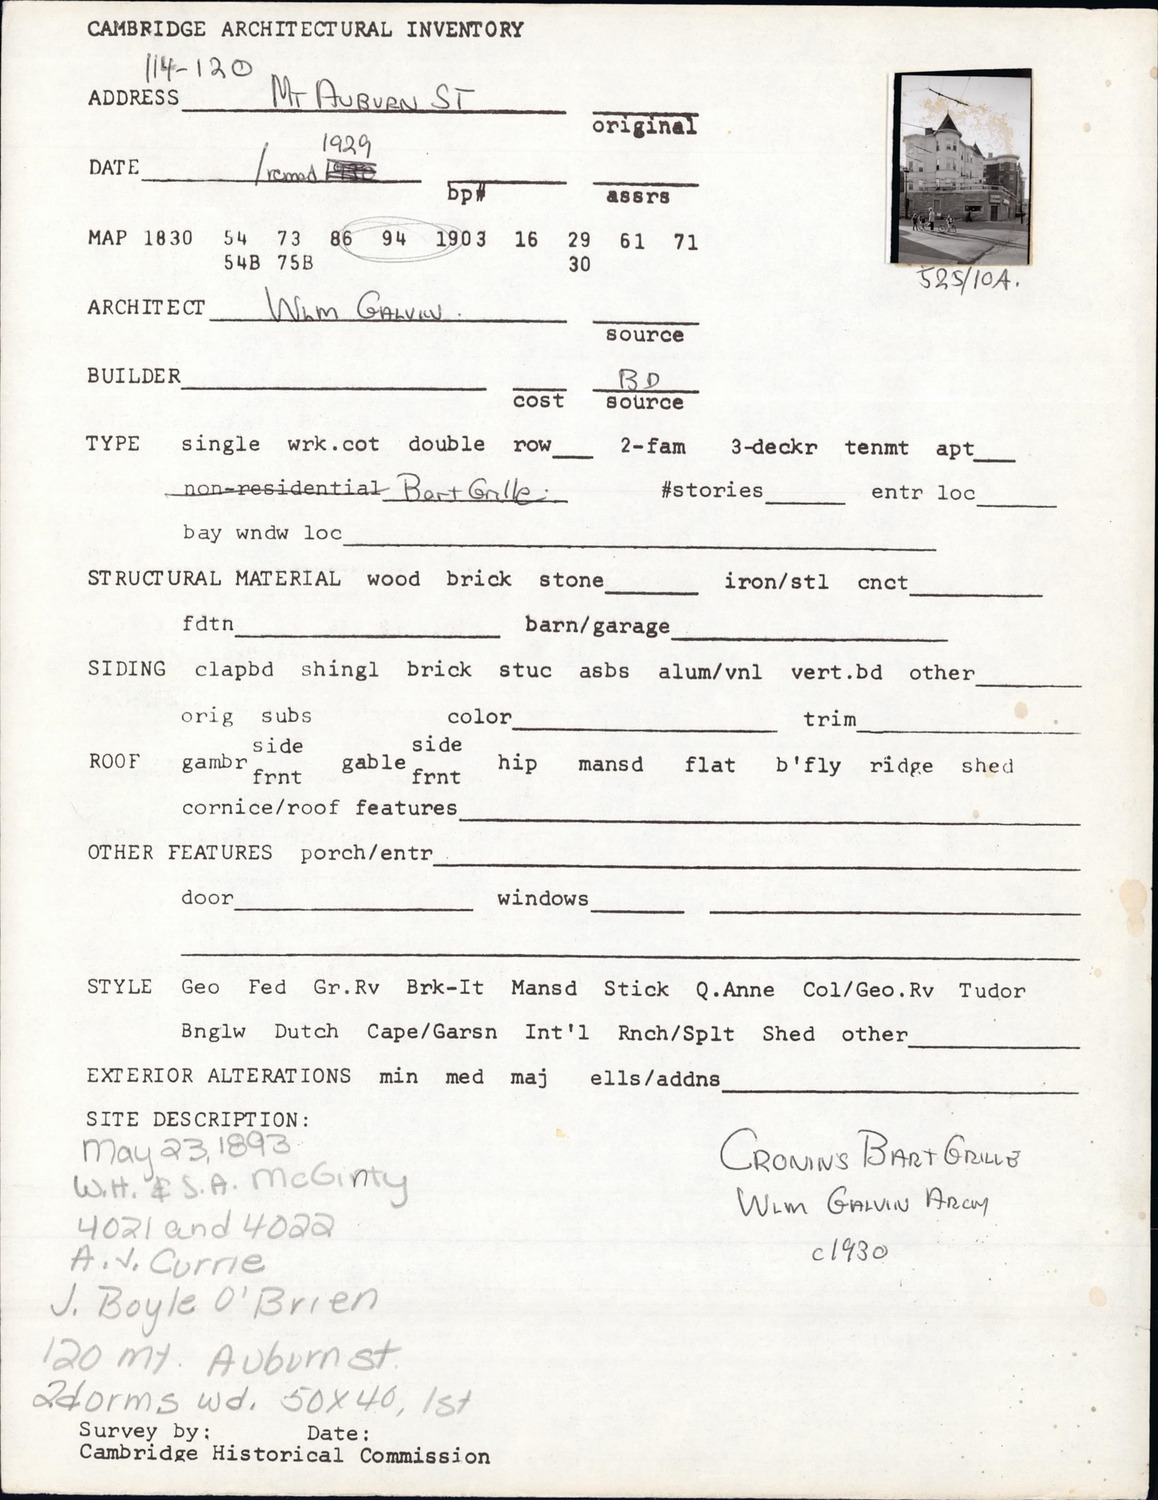 CAMBRIDGE ARCHITECTURAL INVENTORY
114-120
ADDRESS Mt Auburn St
original
1929
DATE /remod
bp# assrs
MAP 1830 54 73 86 94 1903 16 29 61 71
54B 75B 30
525/10A.
ARCHITECT Wlm Galvin.
source
BUILDER BD
cost source
TYPE single wrk.cot double row 2-fam 3-deckr tenmt apt
non-residential Bart Grille #stories entr loc
bay wndw loc
STRUCTURAL MATERIAL wood brick stone iron/stl cnct
fdtn barn/garage
SIDING clapbd shingl brick stuc asbs alum/vnl vert.bd other
orig subs color trim
side side
ROOF gambr gable hip mansd flat b'fly ridge shed
frnt frnt
cornice/roof features
OTHER FEATURES porch/entr
door windows
STYLE Geo Fed Gr.Rv Brk-It Mansd Stick Q.Anne Col/Geo.Rv Tudor
Bnglw Dutch Cape/Garsn Int'l Rnch/Splt Shed other
EXTERIOR ALTERATIONS min med maj ells/addns
SITE DESCRIPTION:
May 23, 1893
W.H. & S.A. McGinty
4021 and 4022
A.J. Currie
J. Boyle O'Brien
120 mt. Auburn st.
2dorms wd. 50x40, 1st
Cronin's Bart Grille
Wlm Galvin Arch
c1930
Survey by: Date:
Cambridge Historical Commission